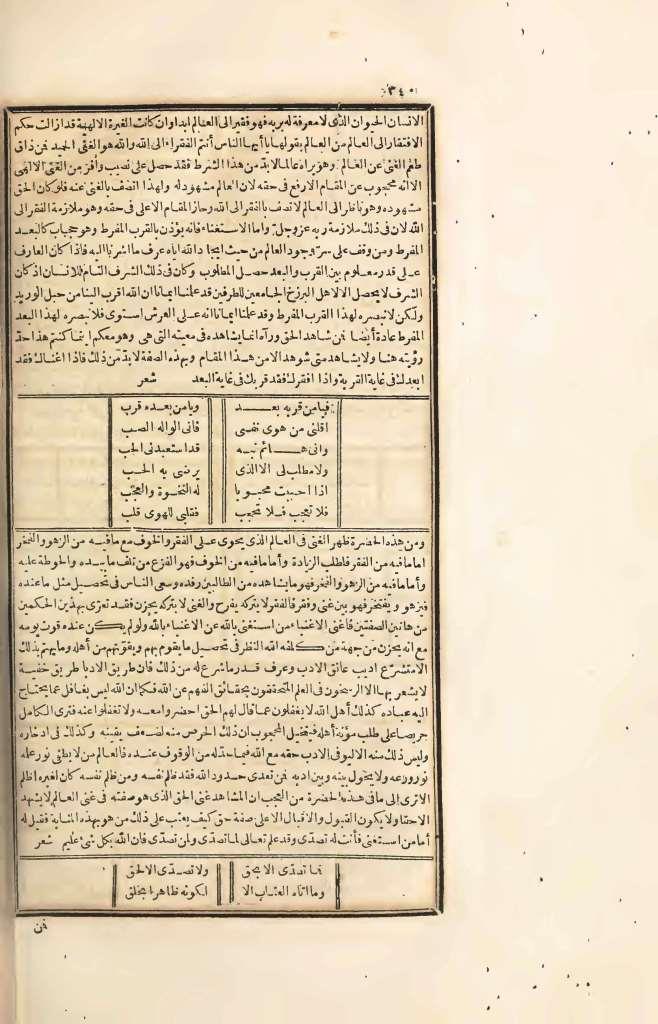 ٣٤٠
الانسان الحيوان الذى لا معرفة له بربه فهو فقير الى العالم ابدا وان كانت الغيرة الالهية قد ازالت حكم
الافتقار الى العالم من العالم بقولها يا أيها الناس أنتم الفقراء الى الله والله هو الغنى الحميد فمن ذاق
طعم الغنى عن العالم وهو يراه عالما لابد من هذا الشرط فقد حصل على نصيب وافر من الغنى الالهى
الا انه محجوب عن المقام الارفع فى حقه لان العالم مشهود له ولهذا اتصف بالغنى عنه فلو كان الحق
مشهوده وهو ناظر الى العالم لا تصف بالفقر الى الله وحاز المقام الاعلى فى حقه وهو ملازمة الفقر الى
الله لان فى ذلك ملازمة ربه عز وجل وأما الاستغناء فانه يؤذن بالقرب المفرط وهو حجاب كالبعد
المفرط ومن وقف على سر وجود العالم من حيث ايجاد الله اياه عرف ما اشرنا اليه فاذا كان العارف
على قدر معلوم بين القرب والبعد حصل المطلوب وكان فى ذلك الشرف التام للانسان اذ كان
الشرف لا يحصل الا لاهل البرزخ الجامعين للطرفين قد علمنا ايمانا ان الله اقرب الينا من حبل الوريد
ولكن لا نبصره لهذا القرب المفرط وقد علمنا ايمانا انه على العرش استوى فلا نبصره لهذا البعد
المفرط عادة أيضا فمن شاهد الحق ورآه انما يشاهده فى معيته التى هى وهو معكم اينما كنتم هذا حد
رؤيته هنا ولا يشاهد متى شوهد الا من هذا المقام وبهذه الصفة لا بد من ذلك فاذا اغناك فقد
ابعدك فى غاية القربة واذا افقرك فقد قربك فى غاية البعد شعر
فيا من قربه بعد ويا من بعده قرب
اقلنى من هوى نفسى فانى الواله الصب
وانى هائم تيه قد استعبدنى الحب
ولا مطلب لى الا الذى يرضى به الحب
اذا احببت محبوبا له النخوة والعجب
فلا تعجب فلا تعجب فقلبى للهوى قلب
ومن هذه الحضرة ظهر الغنى فى العالم الذى يحوى على الفقر والخوف مع ما فيه من الزهو والفخر
اما ما فيه من الفقر فاطلب الزيادة وأما ما فيه من الخوف فهو الفزع من تلف ما بيده والحوطة عليه
وأما ما فيه من الزهو والفخر فهو ما يشاهده من الطالبين رفده وسعى الناس فى تحصيل مثل ما عنده
فيزهو ويفتخر فهو بين غنى وفقر فالفقر لا يتركه يفرح والغنى لا يتركه يحزن فقد تعرى بهذين الحكمين
من هاتين الصفتين فاغنى الاغنياء من استغنى بالله عن الاغنياء بالله ولو لم يكن عنده قوت يومه
مع انه يحزن من جهة من كلفه الله النظر فى تحصيل ما يقوم بهم ويقوتهم من أهله وما يهتم بذلك
الا متشرع اديب عانق الادب وعرف قدر ما شرع له من ذلك فان طريق الادبا طريق خفية
لا يشعر بها الا الراسخون فى العلم المحققون بحقائق الفهم عن الله فكما ان الله ليس بغافل عما يحتاج
اليه عباده كذلك أهل الله لا يغفلون عما قال لهم الحق احضروا معه ولا تغفلوا عنه فترى الكامل
حريصا على طلب مؤنة أهله فيتخيل المحجوب ان ذلك الحرص منه لضعف يقينه وكذلك فى ادخاره
وليس ذلك منه الا ليوفى الادب حقه مع الله فيما حد له من الوقوف عنده فالعالم من لا يطفى نور علمه
نور ورعه ولا يحول بينه وبين ادبه فمن تعدى حدود الله فقد ظلم نفسه ومن ظلم نفسه كان لغيره اظلم
الا ترى الى ما فى هذه الحضرة من العجب ان المشاهد غنى الحق الذى هو صفته فى غنى العالم لا يشهد
الا حقا ولا يكون القبول والاقبال الا على صفة حق كيف يعتب على ذلك من هو بهذه المثابة فقيل له
أما من استغنى فأنت له تصدى وقد علم تعالى لما تصدى ولمن تصدى فان الله بكل شئ عليم شعر
فما تصدى الا بحق ولا تصدى الا لحق
وما اتاه العتاب الا لكونه ظاهرا بخلق
فن